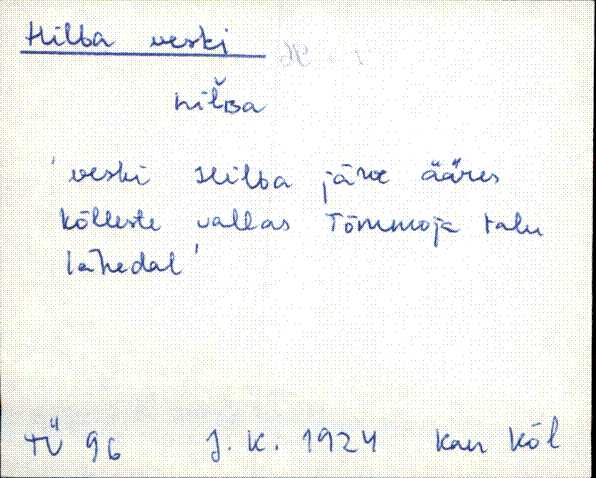 Hilba veski
hilʙa
'veski Hilba järve ääres
Kõlleste vallas Tõmmoja talu
lähedal'
TÜ 96 J. K. 1924 Kan Kõl